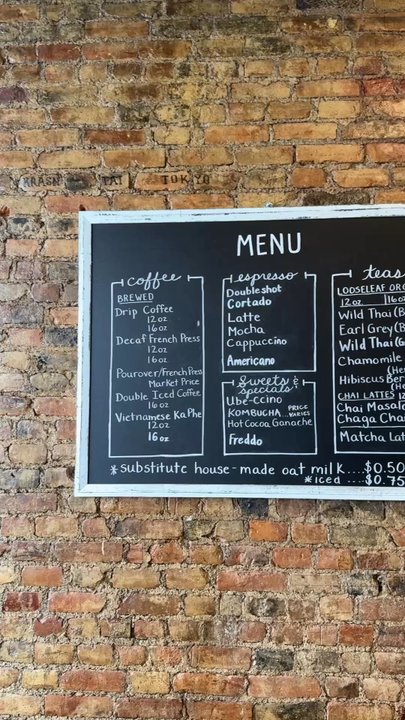 TOKYO
MENU
coffee
BREWED
Drip Coffee
12 oz
16 oz
Decaf French Press
12 oz
16 oz
Pourover/French Press
Market Price
Double Iced Coffee
16 oz
Vietnamese Ka Phe
12 oz
16 oz
espresso
Double shot
Cortado
Latte
Mocha
Cappuccino
Americano
Sweets &
specials
Ube-ccino
KOMBUCHA PRICE VARIES
Hot Cocoa Ganache
Freddo
teas
LOOSELEAF ORG
12 oz 16 oz
Wild Thai (B
Earl Grey (B
Wild Thai (G
Chamomile
(He
Hibiscus Ber
(He
CHAI LATTES 12
Chai Masala
Chaga Chai
Matcha Lat
*substitute house-made oat milk....$0.50
*iced ....$0.75